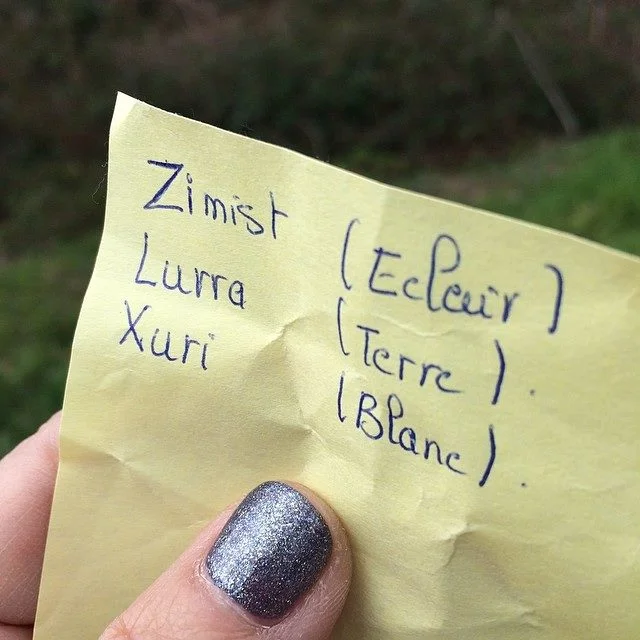 Zimist (Eclair)
Lurra (Terre).
Xuri (Blanc).